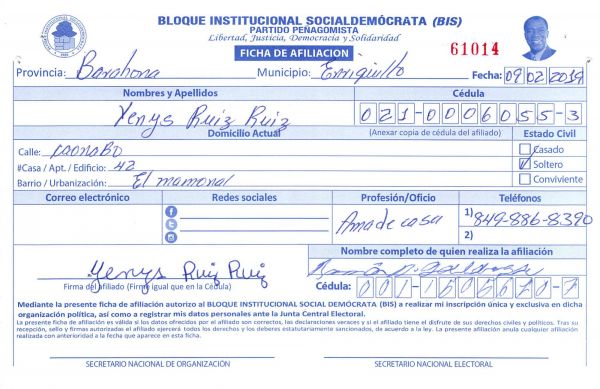 BLOQUE INSTITUCIONAL SOCIALDEMÓCRATA (BIS)
PARTIDO PEÑAGOMISTA
Libertad, Justicia, Democracia y Solidaridad
FICHA DE AFILIACION
61014
Provincia: Barahona Municipio: Enriquillo Fecha: 09 02 2019
Nombres y Apellidos Cédula
Yenys Ruiz Ruiz 021-0006055-3
Domicilio Actual (Anexar copia de cédula del afiliado) Estado Civil
Calle: caonabo Casado
#Casa / Apt. / Edificio: 42 Soltero
Barrio / Urbanización: El mamonal Conviviente
Correo electrónico Redes sociales Profesión/Oficio Teléfonos
Ama de casa 1) 849-886-8390
2)
Nombre completo de quien realiza la afiliación
Yenys Ruiz Ruiz Ramón
Firma del afiliado (Firme igual que en la Cédula) Cédula: 001-1505670-7
Mediante la presente ficha de afiliación autorizo al BLOQUE INSTITUCIONAL SOCIAL DEMÓCRATA (BIS) a realizar mi inscripción única y exclusiva en dicha
organización política, así como a registrar mis datos personales ante la Junta Central Electoral.
La presente ficha de afiliación es válida si los datos ofrecidos por el afiliado son correctos, las declaraciones veraces y si el afiliado tiene el disfrute de sus derechos civiles y políticos. Tras su
recepción, sello y firmas autorizadas el afiliado ejercerá todos los derechos y los deberes estatutariamente sancionados, de acuerdo a la ley. La presente afiliación anula cualquier afiliación
realizada con anterioridad a la fecha que aparece en esta ficha.
SECRETARIO NACIONAL DE ORGANIZACIÓN SECRETARIO NACIONAL ELECTORAL